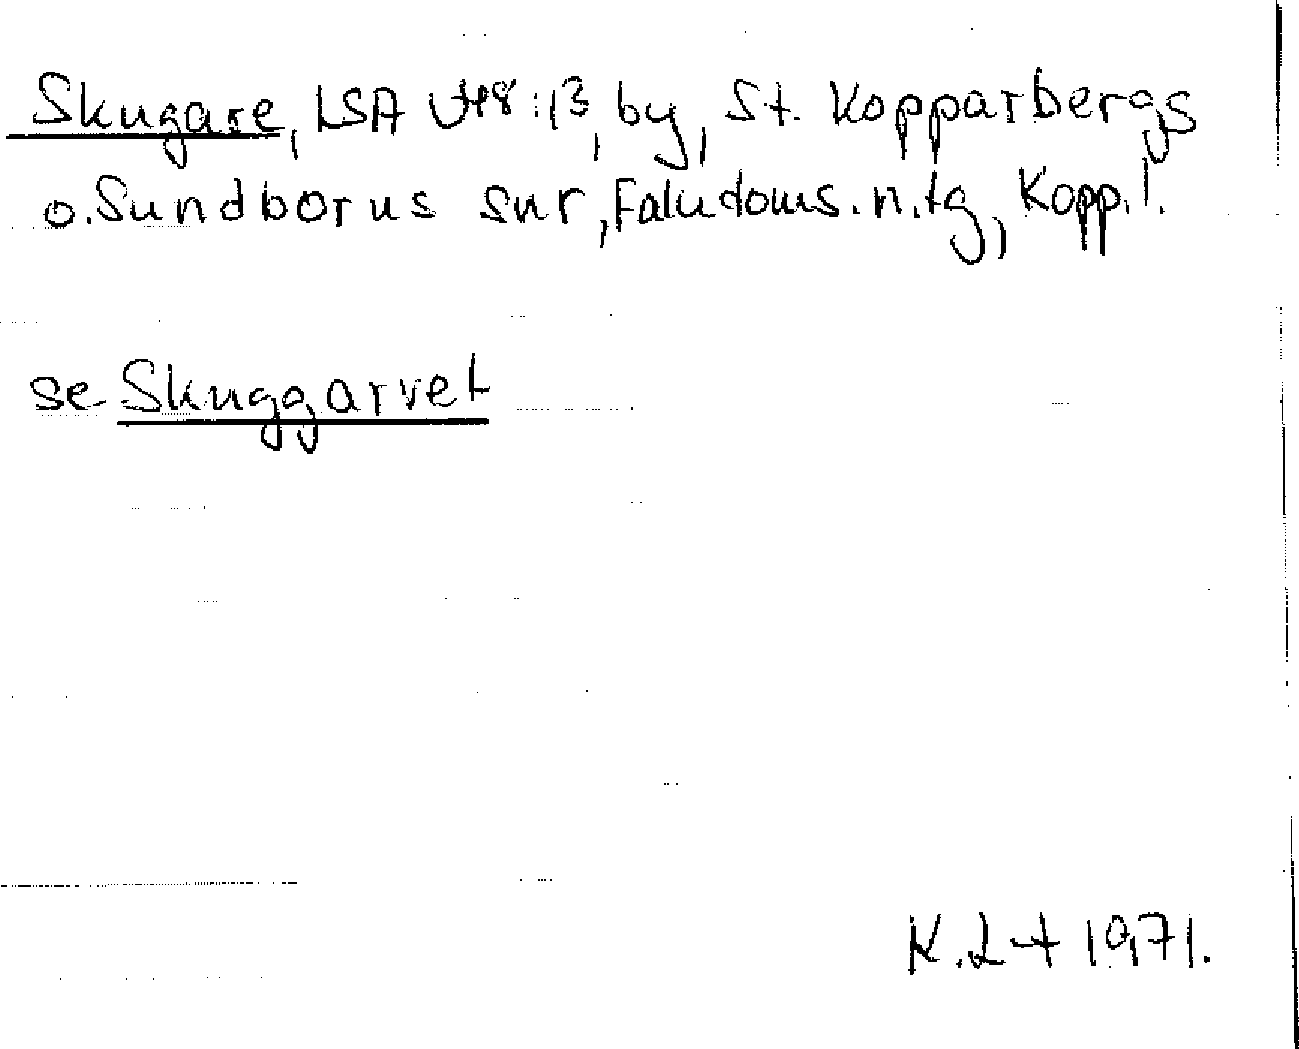 Skugare, LSA U48:13, by, St. Kopparbergs
o. Sundborns snr, Falu doms. n. tg, Kopp. l.
se Skuggarvet
1971.